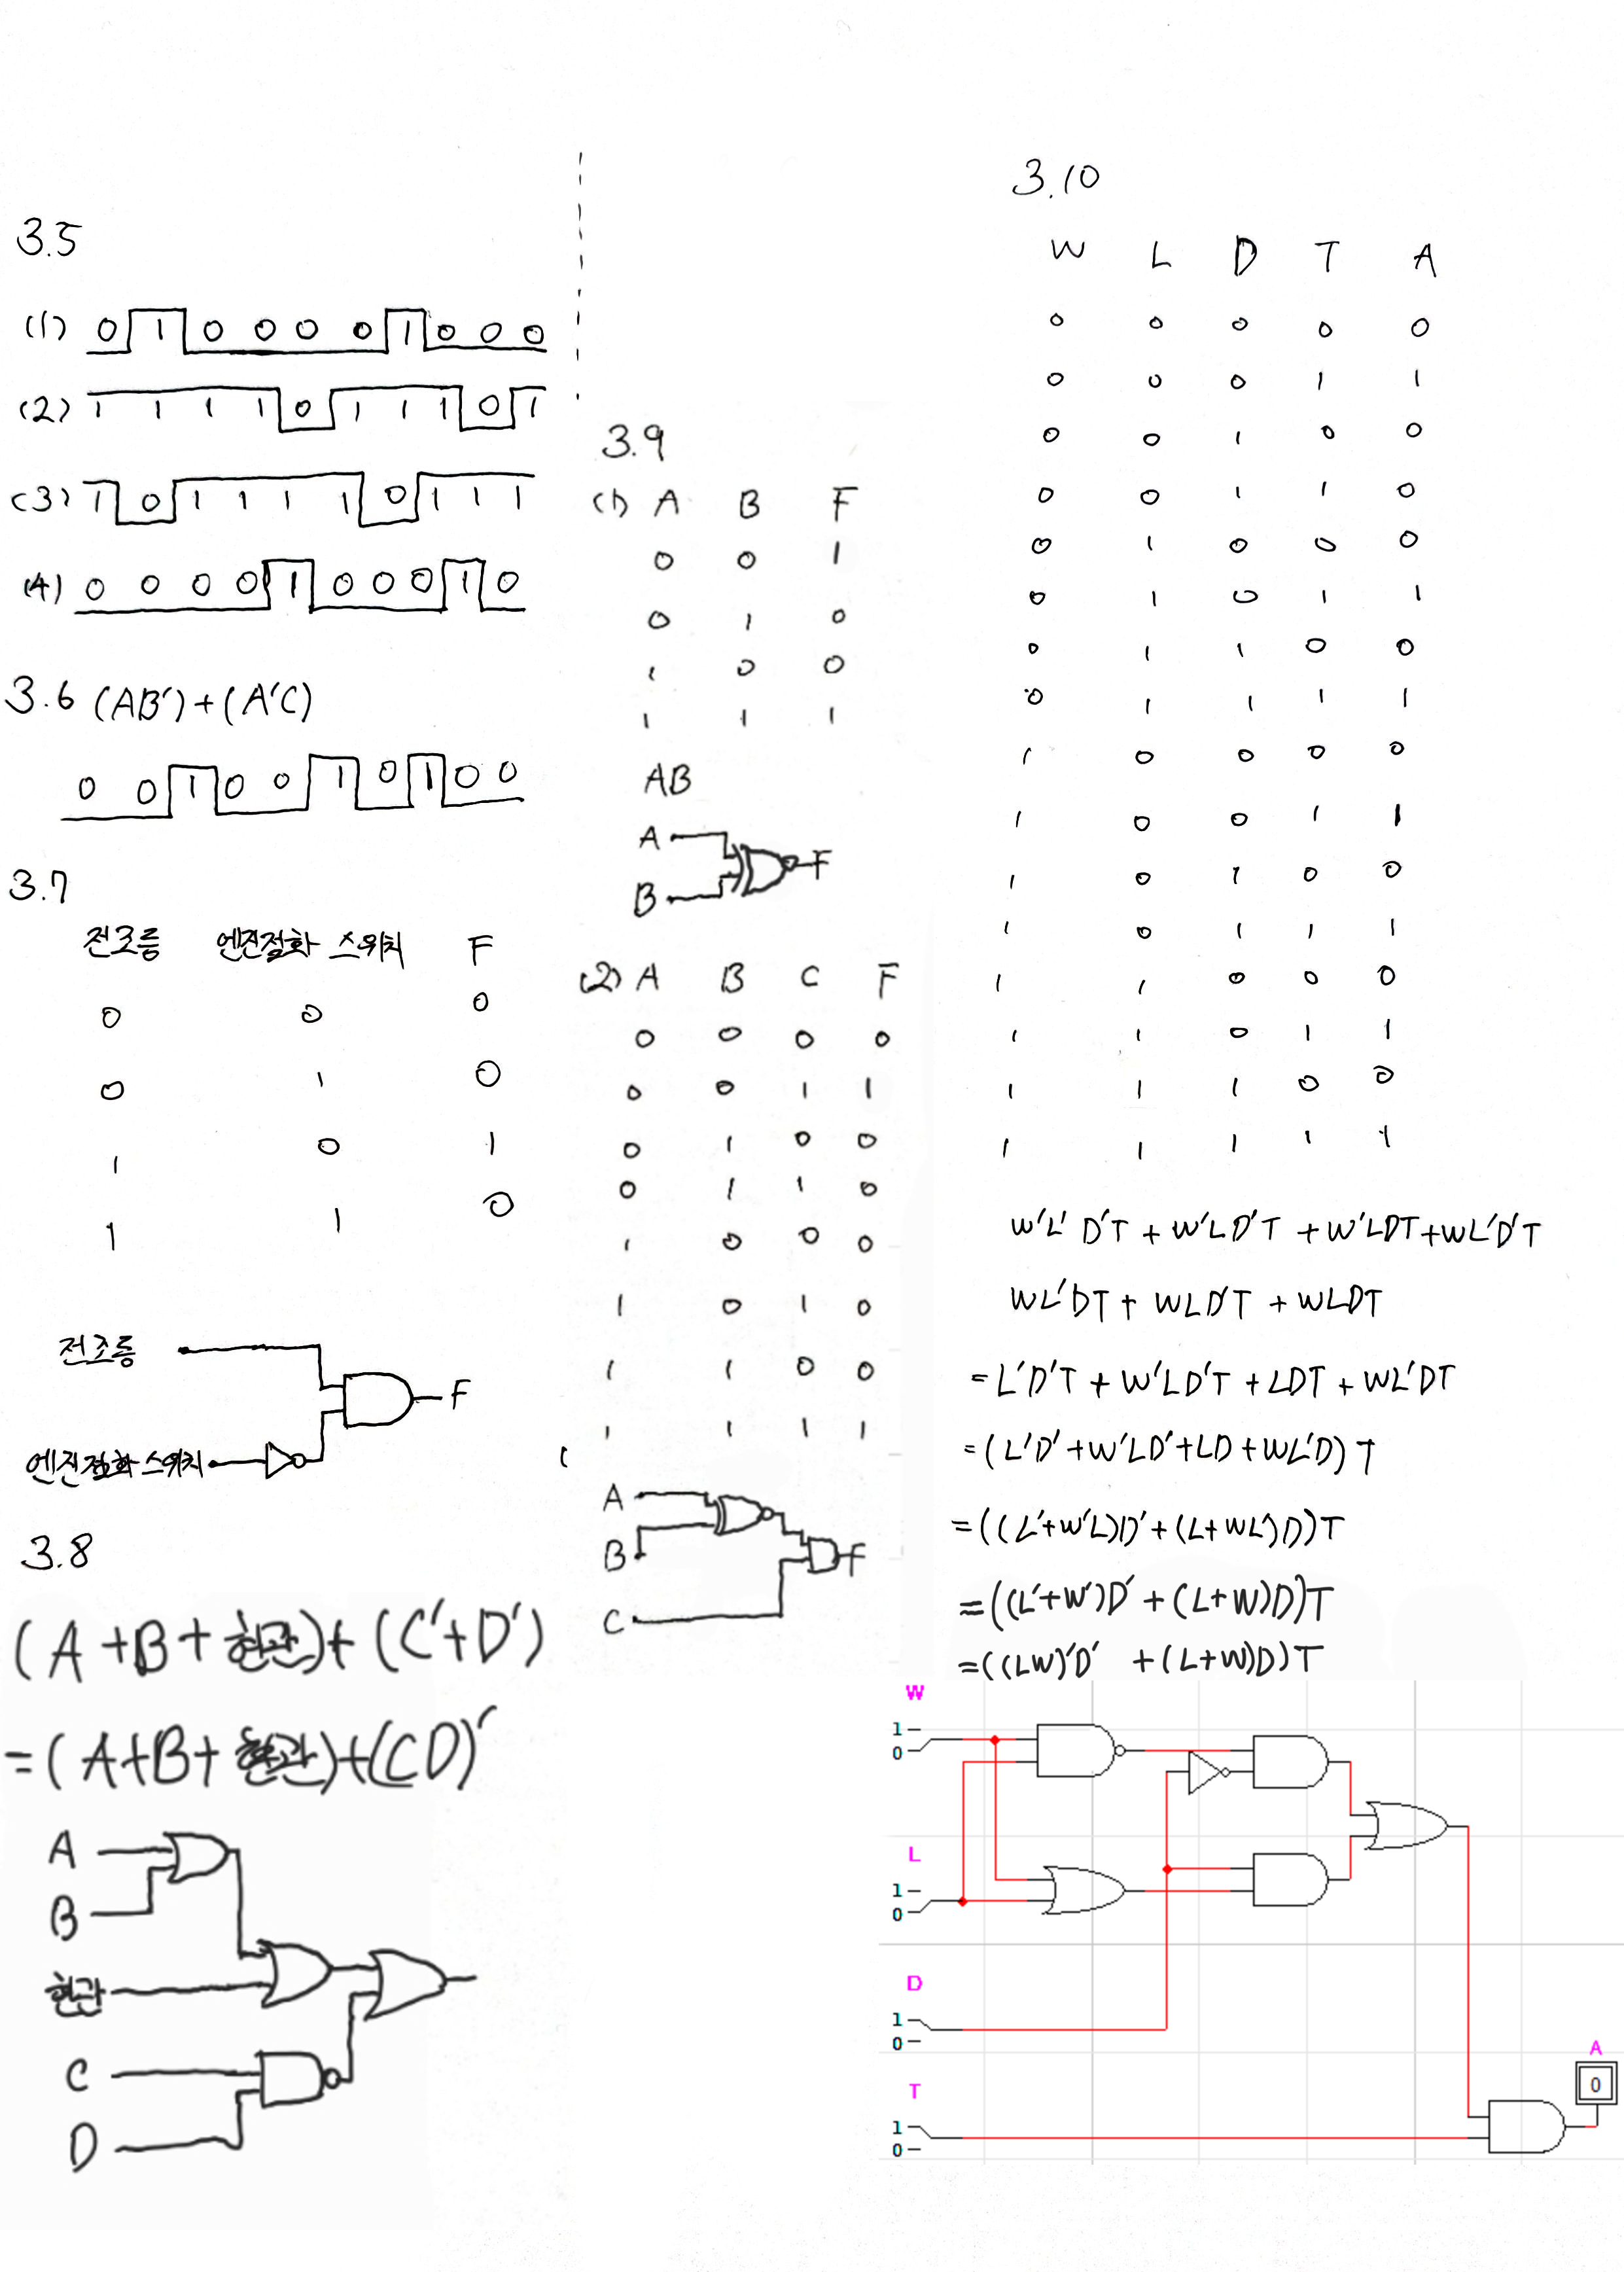 3.5
(1) 0 1 0 0 0 0 1 0 0 0
(2) 1 1 1 1 0 1 1 1 0 1
(3) 1 0 1 1 1 1 0 1 1 1
(4) 0 0 0 0 1 0 0 0 1 0
3.6 (AB')+(A'C)
0 0 1 0 0 1 0 1 0 0
3.7
전조등 엔진점화 스위치 F
0 0 0
0 1 0
1 0 1
1 1 0
전조등
F
엔진점화 스위치
3.8
(A+B+현관)+(C'+D')
=(A+B+현관)+(CD)'
A
B
현관
C
D
3.9
(1) A B F
0 0 1
0 1 0
1 0 0
1 1 1
AB
A
F
B
(2) A B C F
0 0 0 0
0 0 1 1
0 1 0 0
0 1 1 0
1 0 0 0
1 0 1 0
1 1 0 0
1 1 1 1
A
B
F
C
3.10
W L D T A
0 0 0 0 0
0 0 0 1 1
0 0 1 0 0
0 0 1 1 0
0 1 0 0 0
0 1 0 1 1
0 1 1 0 0
0 1 1 1 1
1 0 0 0 0
1 0 0 1 1
1 0 1 0 0
1 0 1 1 1
1 1 0 0 0
1 1 0 1 1
1 1 1 0 0
1 1 1 1 1
W'L'D'T + W'LD'T + W'LDT+WL'D'T
WL'DT + WLD'T + WLDT
=L'D'T + W'LD'T + LDT + WL'DT
=(L'D'+W'LD'+LD+WL'D)T
=((L'+W'L)D'+(L+WL')D)T
=((L'+W')D'+(L+W)D)T
=((LW)'D' +(L+W)D)T
W
1
0
L
1
0
D
1
0
T
1
0
A
0